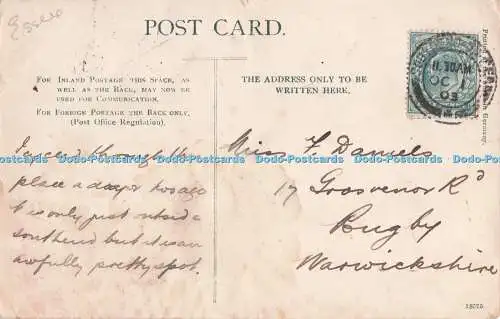 Essex
POST CARD.
FOR INLAND POSTAGE THIS SPACE, AS
WELL AS THE BACK, MAY NOW BE
USED FOR COMMUNICATION.
FOR FOREIGN POSTAGE THE BACK ONLY,
(Post Office Regulation).
THE ADDRESS ONLY TO BE
WRITTEN HERE.
Printed in Germany.
11.30AM
OC
03
I passed through this
place a day or two ago
It is only just outside
southend but it is an
awfully pretty spot.
Miss F Daniels
17 Grosvenor Rd
Rugby
Warwickshire
Postcards Postcards Postcards Postcards Postcards Postcards Postcards